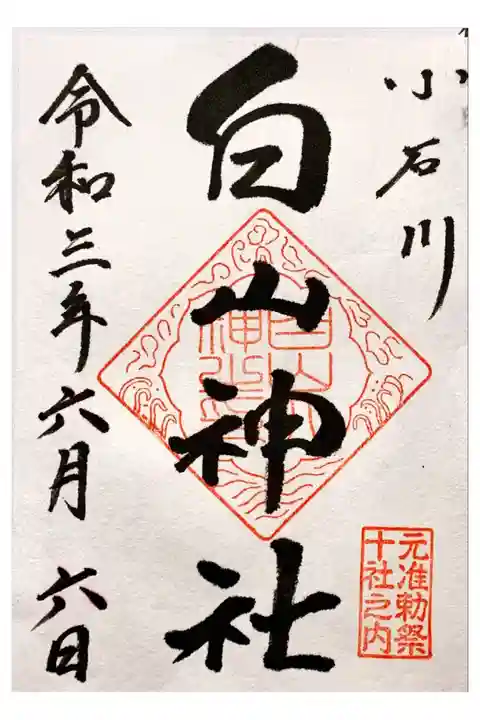 小石川
白山神社
元准勅祭
十社之内
令和三年六月六日